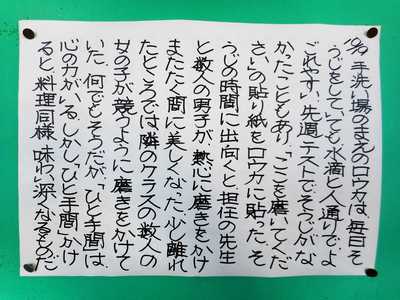 10/9 手洗い場のまえのロウカは、毎日そ
うじをしていても、水滴と人通りでよ
ごれやすい。先週、テストでそうじがな
かったこともあり、「ここを磨いてくだ
さい」の貼り紙をロウカに貼った。そ
うじの時間に出向くと、担任の先生
と数人の男子が、熱心に磨きをかけ
またたく間に美しくなった。少し離れ
たところでは、隣のクラスの数人の
女の子が競うように磨きをかけて
いた。何でもそうだが、「ひと手間」は、
心の力がいる。しかし、「ひと手間」かけ
ると、料理同様、味わい深くなるものだ